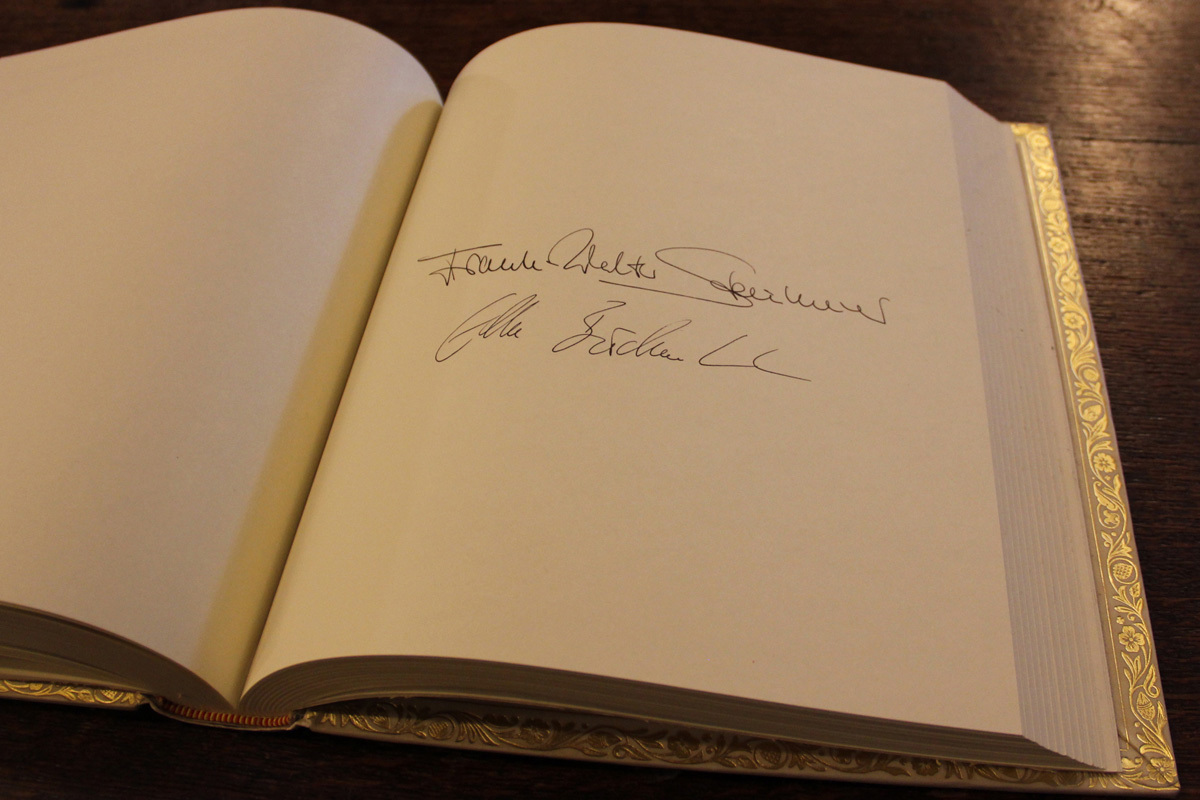 Frank-Walter Steinmeier
Elke Büdenbender